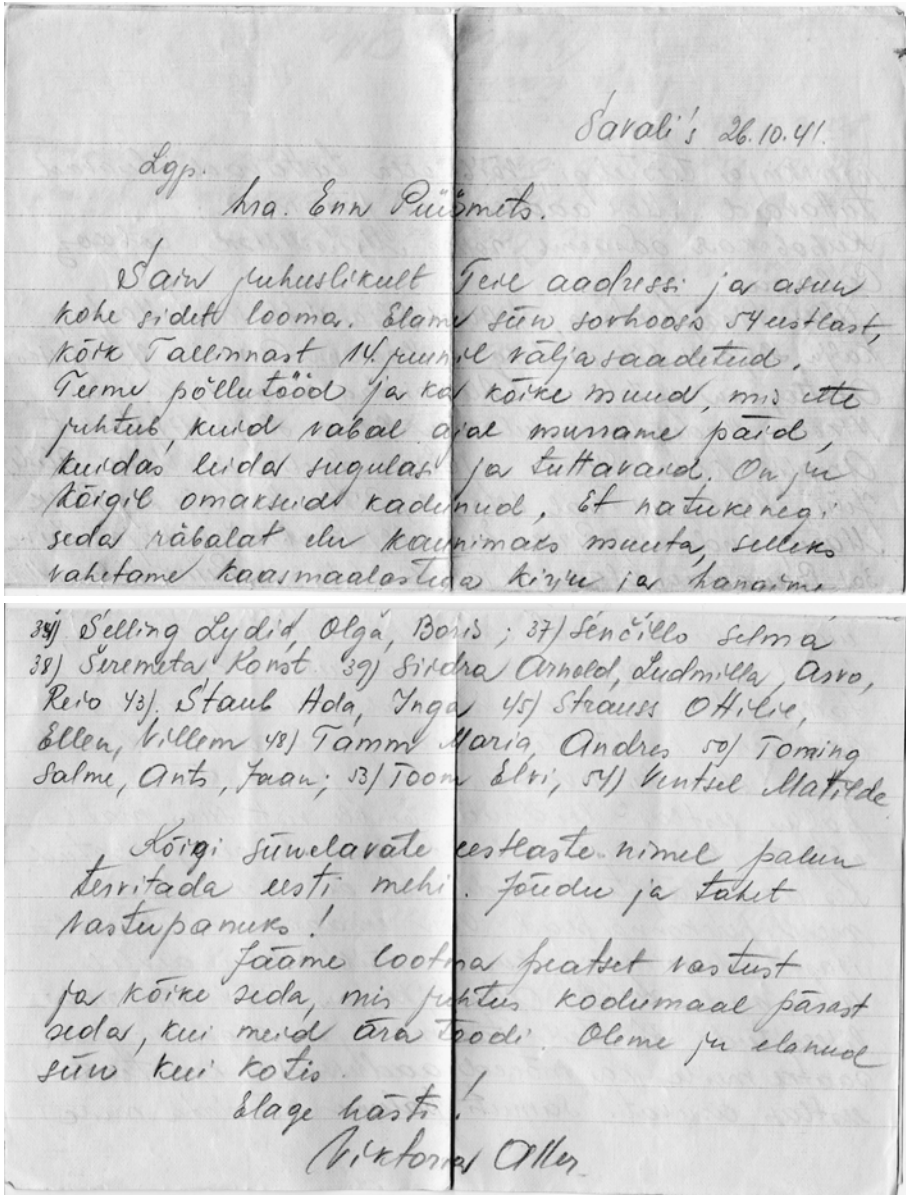 Savali's 26.10.41.
Lgp.
hra. Enn Püümets.
Sain juhuslikult Teie aadressi ja asun
kohe sidet looma. Elame siin sovhoosis 54 eestlast,
kõik Tallinnast 14. juunil välja saadetud.
Teeme põllutööd ja ka kõike muud, mis ette
juhtub, kuid vabal ajal murrame päid,
kuidas leida sugulasi ja tuttavaid. On ju
kõigil omakseid kadunud. Et natukenegi
seda räbalat elu kaunimaks muuta, selleks
vahetame kaasmaalastega kirju ja hangime
34) Selling Lydia, Olga, Boris; 37) Senčillo Selma
38) Šeremeta Konst 39) Siidra Arnold, Ludmilla, Arvo,
Reio 43). Staub Ada, Inga 45) Strauss Ottilie,
Ellen, Villem 48) Tamm Maria, Andres 50) Toming
Salme, Ants, Jaan; 53) Toom Elvi, 54) Ventsel Matilde
Kõigi siinelavate eestlaste nimel palun
tervitada eesti mehi. Jõudu ja tahet
vastupanuks!
Jääme lootma peatset vastust
ja kõike seda, mis juhtus kodumaal pärast
seda, kui meid ära toodi. Oleme ju elanud
siin kui kotis.
Elage hästi!
Viktoria Aller.